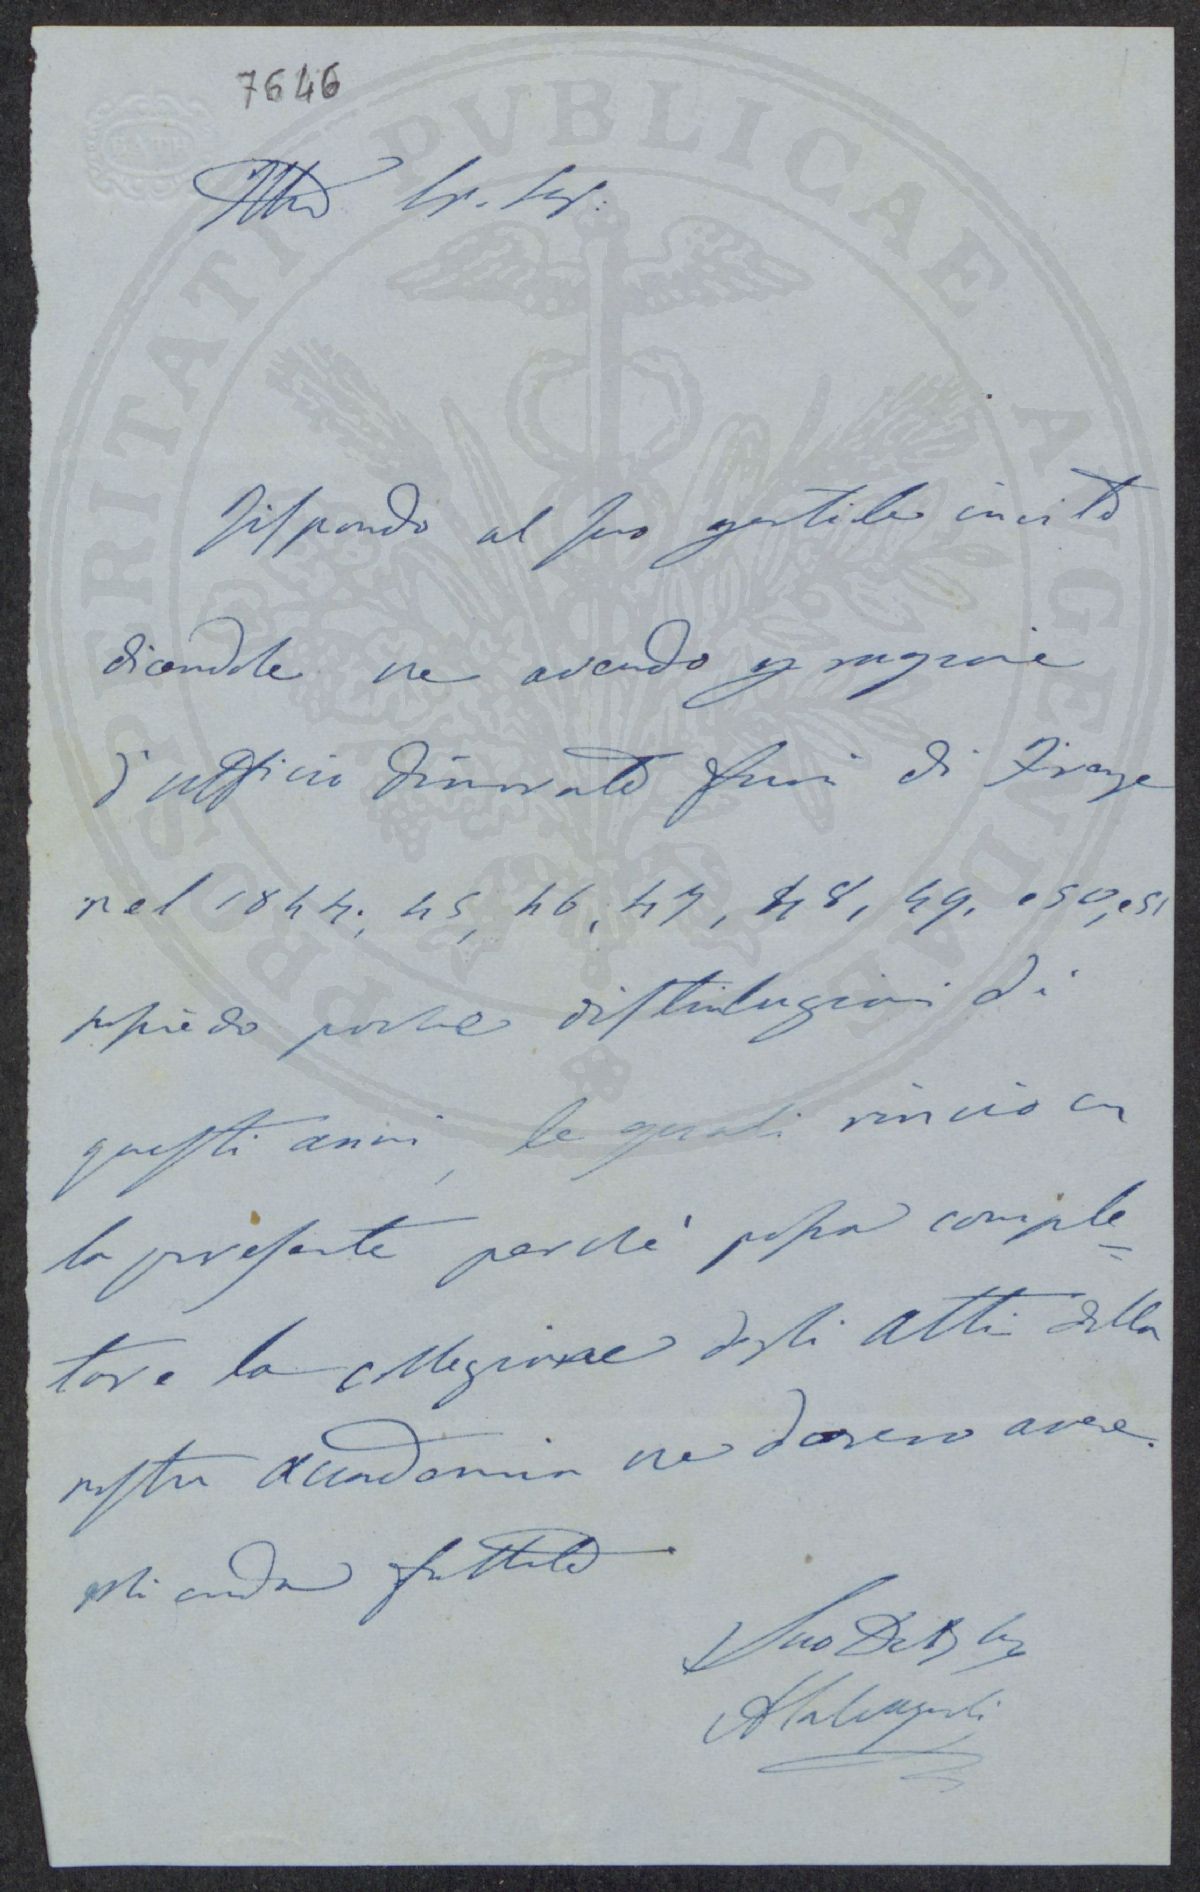 7646
BATH
PROSPERITATI PVBLICAE AVGENDAE
Illmo Sig. Sig.
Rispondo al suo gentile invito
dicendole che avendo per ragione
d'uffizio dimorato fuori di Firenze
nel 1844, 45, 46, 47, 48, 49, e 50, e 51
posside poche distribuzioni di
questi anni, le quali rinvio con
la presente perchè possa comple=
tare la collezione degli Atti della
nostra accademia che doveva avere
Suo Dev